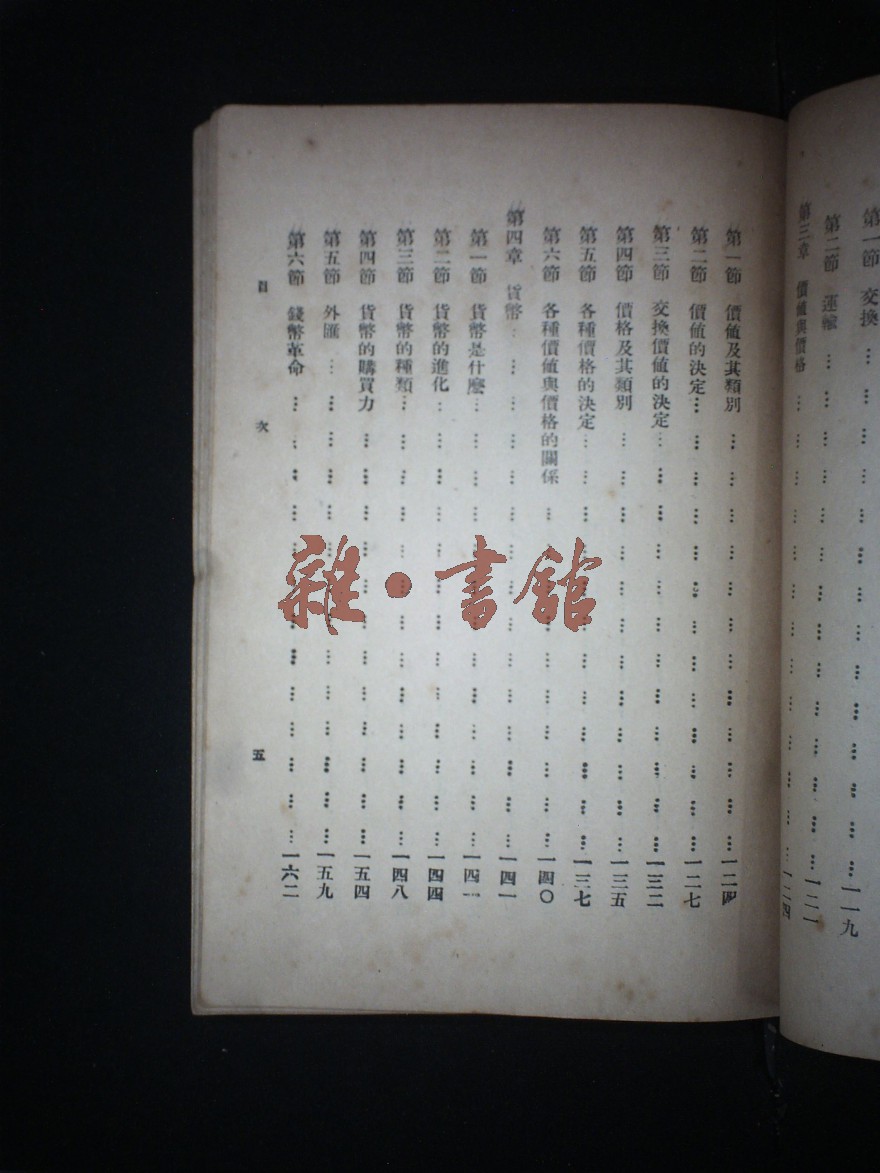 第一節 交換 一一九
第二節 運輸 一二一
第三章 價值與價格 一二四
第一節 價值及其類別 一二四
第二節 價值的決定 一二七
第三節 交換價值的決定 一三二
第四節 價格及其類別 一三五
第五節 各種價格的決定 一三七
第六節 各種價值與價格的關係 一四〇
第四章 貨幣 一四一
第一節 貨幣是什麼 一四一
第二節 貨幣的進化 一四四
第三節 貨幣的種類 一四八
第四節 貨幣的購買力 一五四
第五節 外匯 一五九
第六節 錢幣革命 一六二
目次 五
雜·書館